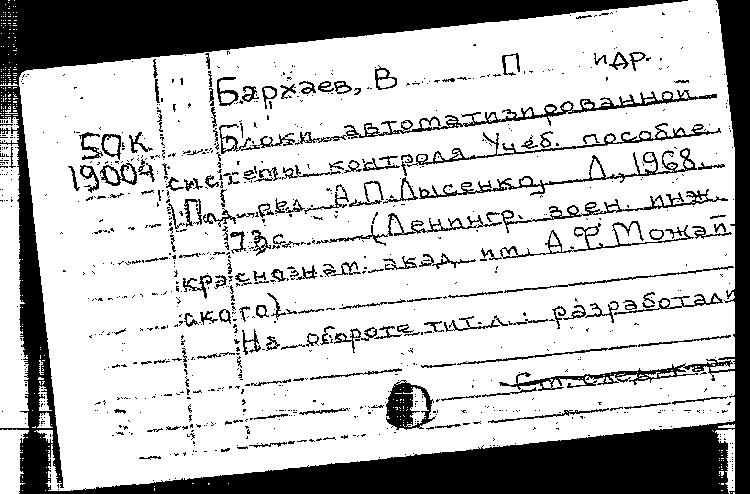 Бархаев, В П и др.
50К
19004
Блоки автоматизированной
системы контроля. Учеб. пособие.
Под ред. А.П.Лысенко, Л., 1968.
73с. (Ленингр. воен. инж.
краснознам. акад. им. А.Ф.Можай-
ского).
На обороте тит.л.: разработали
См. след. карт